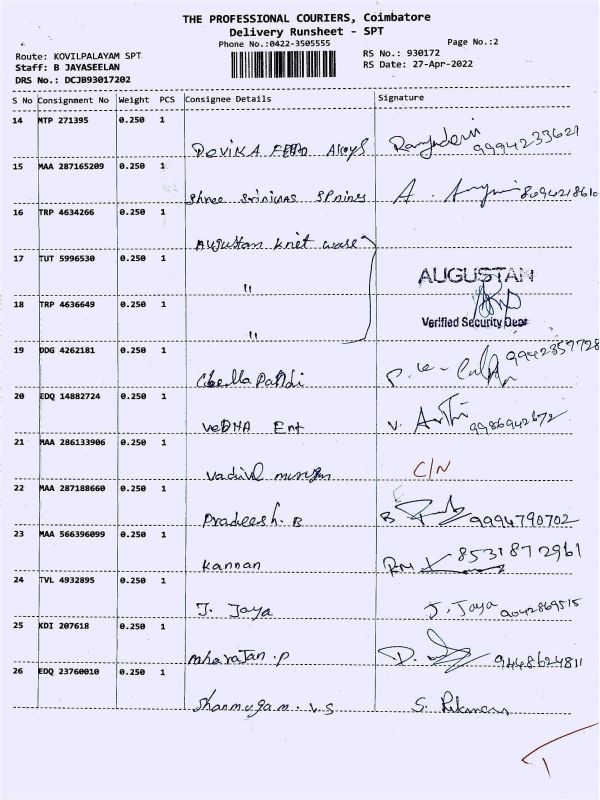 THE PROFESSIONAL COURIERS, Coimbatore
Delivery Runsheet - SPT
Phone No.:0422-3505555
Page No.:2
Route: KOVILPALAYAM SPT
RS No.: 930172
Staff: B JAYASEELAN
RS Date: 27-Apr-2022
DRS No.: DCJB93017202
S No Consignment No Weight PCS Consignee Details Signature
14 MTP 271395 0.250 1
DEVIKA Alloys 9994233621
15 MAA 287165209 0.250 1
Shree Srinivas Springs A.
16 TRP 4634266 0.250 1
Augustan knit ware
17 TUT 5996530 0.250 1
"
AUGUSTAN
18 TRP 4636649 0.250 1
"
Verified Security Dept
19 DDG 4262181 0.250 1
Chella Pandi 9942357728
20 EDQ 14882724 0.250 1
VEDHA Ent V. Arthi 9986942672
21 MAA 286133906 0.250 1
Vadivel murugan C/N
22 MAA 287188660 0.250 1
Pradeesh. B B 9994790702
23 MAA 566396099 0.250 1
Kannan 8531872961
24 TVL 4932895 0.250 1
J. Jaya J. Jaya 9042869515
25 KDI 207618 0.250 1
mharajan.p 9448624811
26 EDQ 23760010 0.250 1
Shanmugam. V.S S.